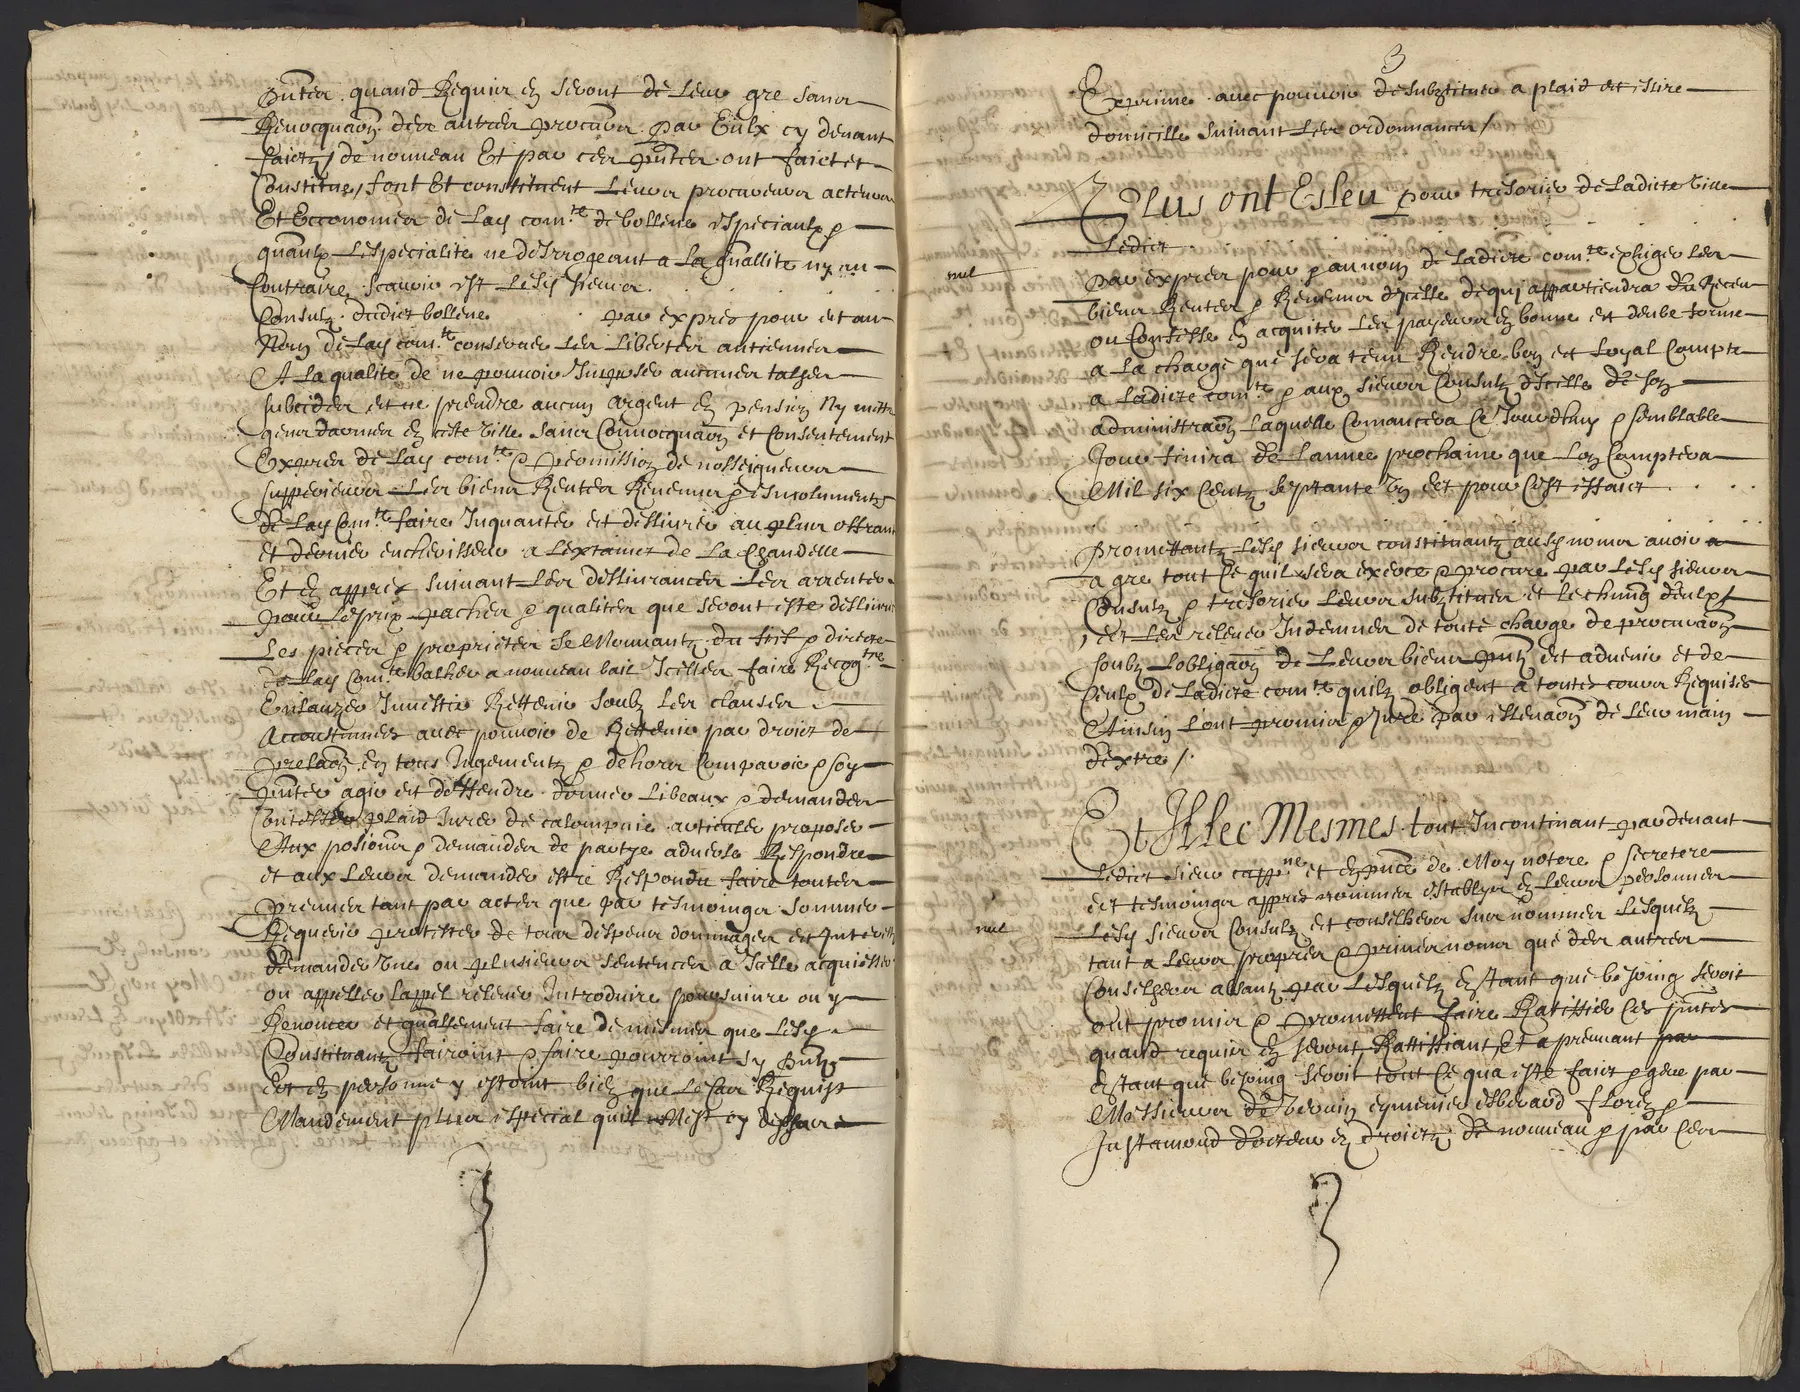 pntes quand Requis en seront de leur gre sans
Revocquaon des autres procurs par Eulx cy devant
faictz / de nouveau Et par ces pntes ont faict et
Constitue, font Et constituent leurs procureurs acteurs
Et Economes de lad com.te de bollene speciaulx &
quaulx lespecialite ne desrogeant a la quallite ny au
Contraire, scavoir est lesd sieurs
Consulz dudict bollene par expres pour et au
Nom de lad com.te conserver les libertes antiennes
A la qualite de ne pouvoir Imposer aucunes talhes
subcides et ne prendre aucun argent en pension Ny mettre
gens darmes en ceste ville sans Convocquaon et Consentement
Expres de lad com.te & permission de nosseigneurs
supperieurs les biens Rentes Revenus & esmoluments
de lad Com.te faire Inquanter et dellivrer au plus offrant
et dernier encherisseur a lextainct de la Chandelle
Et en appres suivant les dellivrances les arrenter
pour le prix paches & qualites que seront este dellivre
Les pieces & proprietes se Mouvantz du fief & directe
de lad Com.te balher a nouveau bail Icelles faire Recog.tre
Enlauzer Investir Rettenir soubz les clauses
Accoustumees avec pouvoir de Rettenir par droict de
prelaon en tous Jugements & dehors Comparoir & soy
pnter agir et deffendre donner libeaux & demandes
Contester plaid Jurer de calompnie articuler proposer
Aux posions & demandes de partye adverse Respondre
et aux leurs demander estre Respondu faire toutes
preuves tant par actes que par tesmoings sommer
Requerir protester de tous despens dommages et Interestz
demander une ou plusieurs sentences a Icelle acquiesser
ou appeller lappel relever Introduire poursuivre ou y
Renoncer et gnallement faire de mesmes que lesd
Constituantz fairoint & faire pourroint sy pntz
et en personne y estoint bien que le Cas Requist
Mandement plus special quil Nest cy dessus
3
Exprime avec pouvoir de substituer a plaid et eslire
domicille suivant les ordonnances /
Plus ont Esleu pour tresorier de ladicte ville
Ledict
nul
par expres pour & au nom de ladicte com.te exhiger les
biens Rentes & Revenus dicelle de qui appartiendra du Receu
ou Confesse en acquiter les payeurs en bonne et deube forme
a la charge que sera tenu Rendre bon et loyal Compte
a ladicte com.te & aux sieurs Consulz dicelle de son
administraon laquelle Comancera Ce Jourdhuy & semblable
Jour finira de lannee prochaine que lon Comptera
Mil six Centz septante un et pour Cest effaict
promettantz lesd sieurs constituantz ausd noms avoir
a gre tout Ce quil sera exerce & procure par lesd sieurs
Consulz & tresorier leurs substitues et le chung deulx
et les relever Indemnes de toute charge de procuraon
soubz lobligaon de leurs biens pntz et advenir et de
Ceulx de ladicte com.te quilz obligent a toutes cours Requises
Ainsin lont promis & Jure par ellevaon de leur main
dextre /.
Et Illec Mesmes tout Incontinant par devant
Ledict sieur capp.ne et en pnce de Moy notere & secretere
et tesmoings appres nommes establys en leurs personnes
nul
Lesd sieurs Consulz et conselhers sus nommes lesquelz
tant a leurs propres & prives noms que des autres
Conselhers absantz par lesquelz Estant que besoing seroit
ont promis & promettent faire Ratiffier Ces pntes
quand requis en seront, Rattiffiant, Et approuvant
Estant que besoing seroit tout Ce qua este faict & gere par
Messieurs de Vervin eymenier esberard florens &
Justamond docteur en droictz de nouveau & par Ces